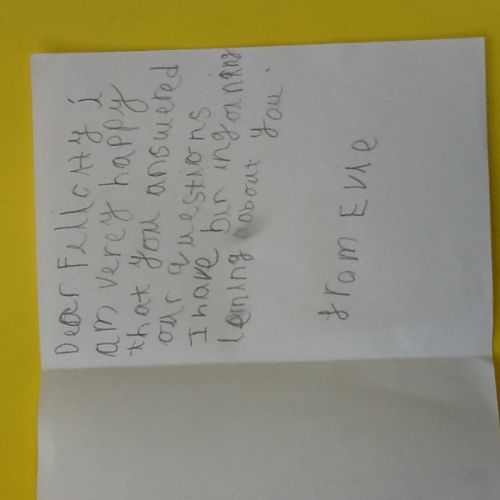 Dear Fillcity i
am verey happy
that you answered
our questions
I have bin ingoining
lerning about you.
from Evie